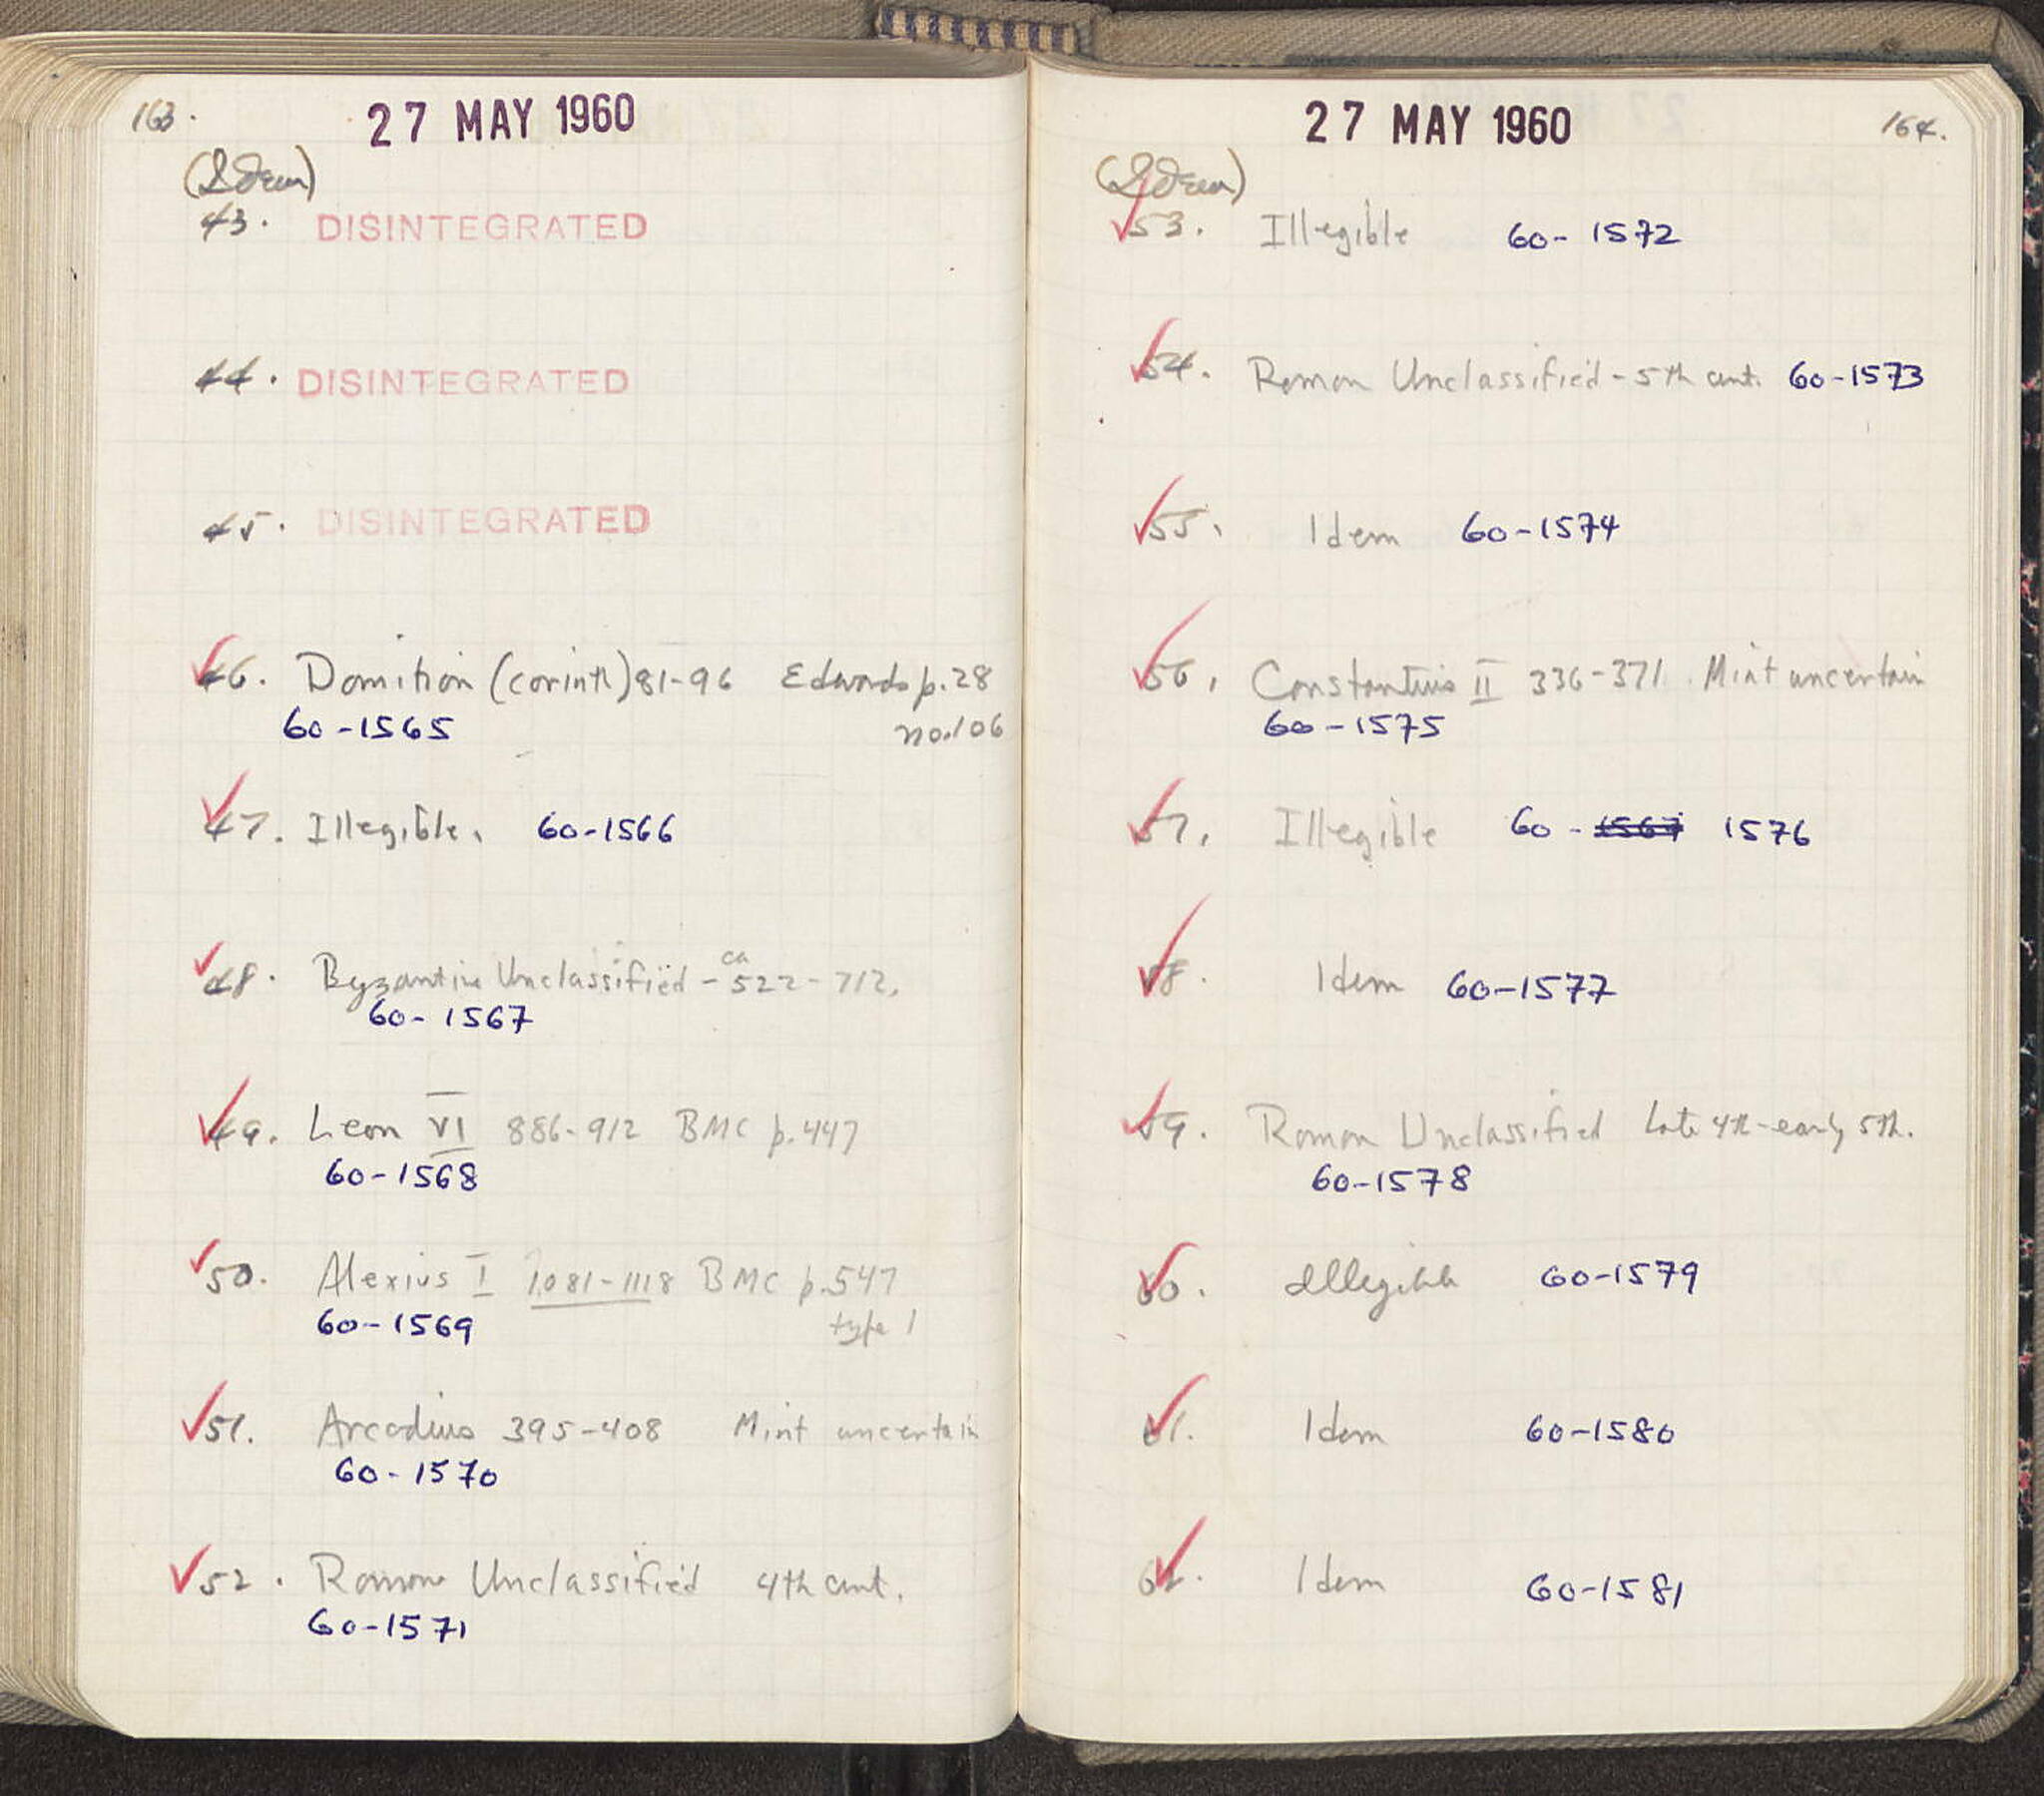 163.
27 MAY 1960
(Idem)
43. DISINTEGRATED
44. DISINTEGRATED
45. DISINTEGRATED
46. Domitian (Corinth) 81-96 Edwards p.28
60-1565 no.106
47. Illegible. 60-1566
ca
48. Byzantine Unclassified - 522-712.
60-1567
49. Leon VI 886-912 BMC p.447
60-1568
50. Alexius I 1081-1118 BMC p.547
60-1569 type 1
51. Arcadius 395-408 Mint uncertain
60-1570
52. Roman Unclassified 4th cent.
60-1571
27 MAY 1960
164.
(Idem)
53. Illegible 60-1572
54. Roman Unclassified - 5th cent. 60-1573
55. Idem 60-1574
56. Constantius II 336-371 Mint uncertain
60-1575
57. Illegible 60-1567 1576
58. Idem 60-1577
59. Roman Unclassified Late 4th-early 5th.
60-1578
60. Illegible 60-1579
61. Idem 60-1580
62. Idem 60-1581